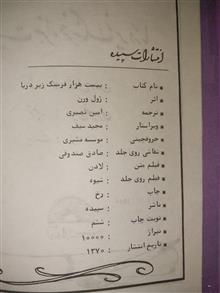 انتشارات سپیده
نام کتاب : بیست هزار فرسنگ زیر دریا
اثر : ژول ورن
ترجمه : امین نصیری
ویراستار : مجید سیف
حروفچینی : موسسه مشیری
نقاشی روی جلد : صادق صندوقی
فیلم متن : لادن
فیلم روی جلد : شیوه
چاپ : رخ
ناشر : سپیده
نوبت چاپ : ششم
تیراژ : ۱۰۰۰۰
تاریخ انتشار : ۱۳۷۰